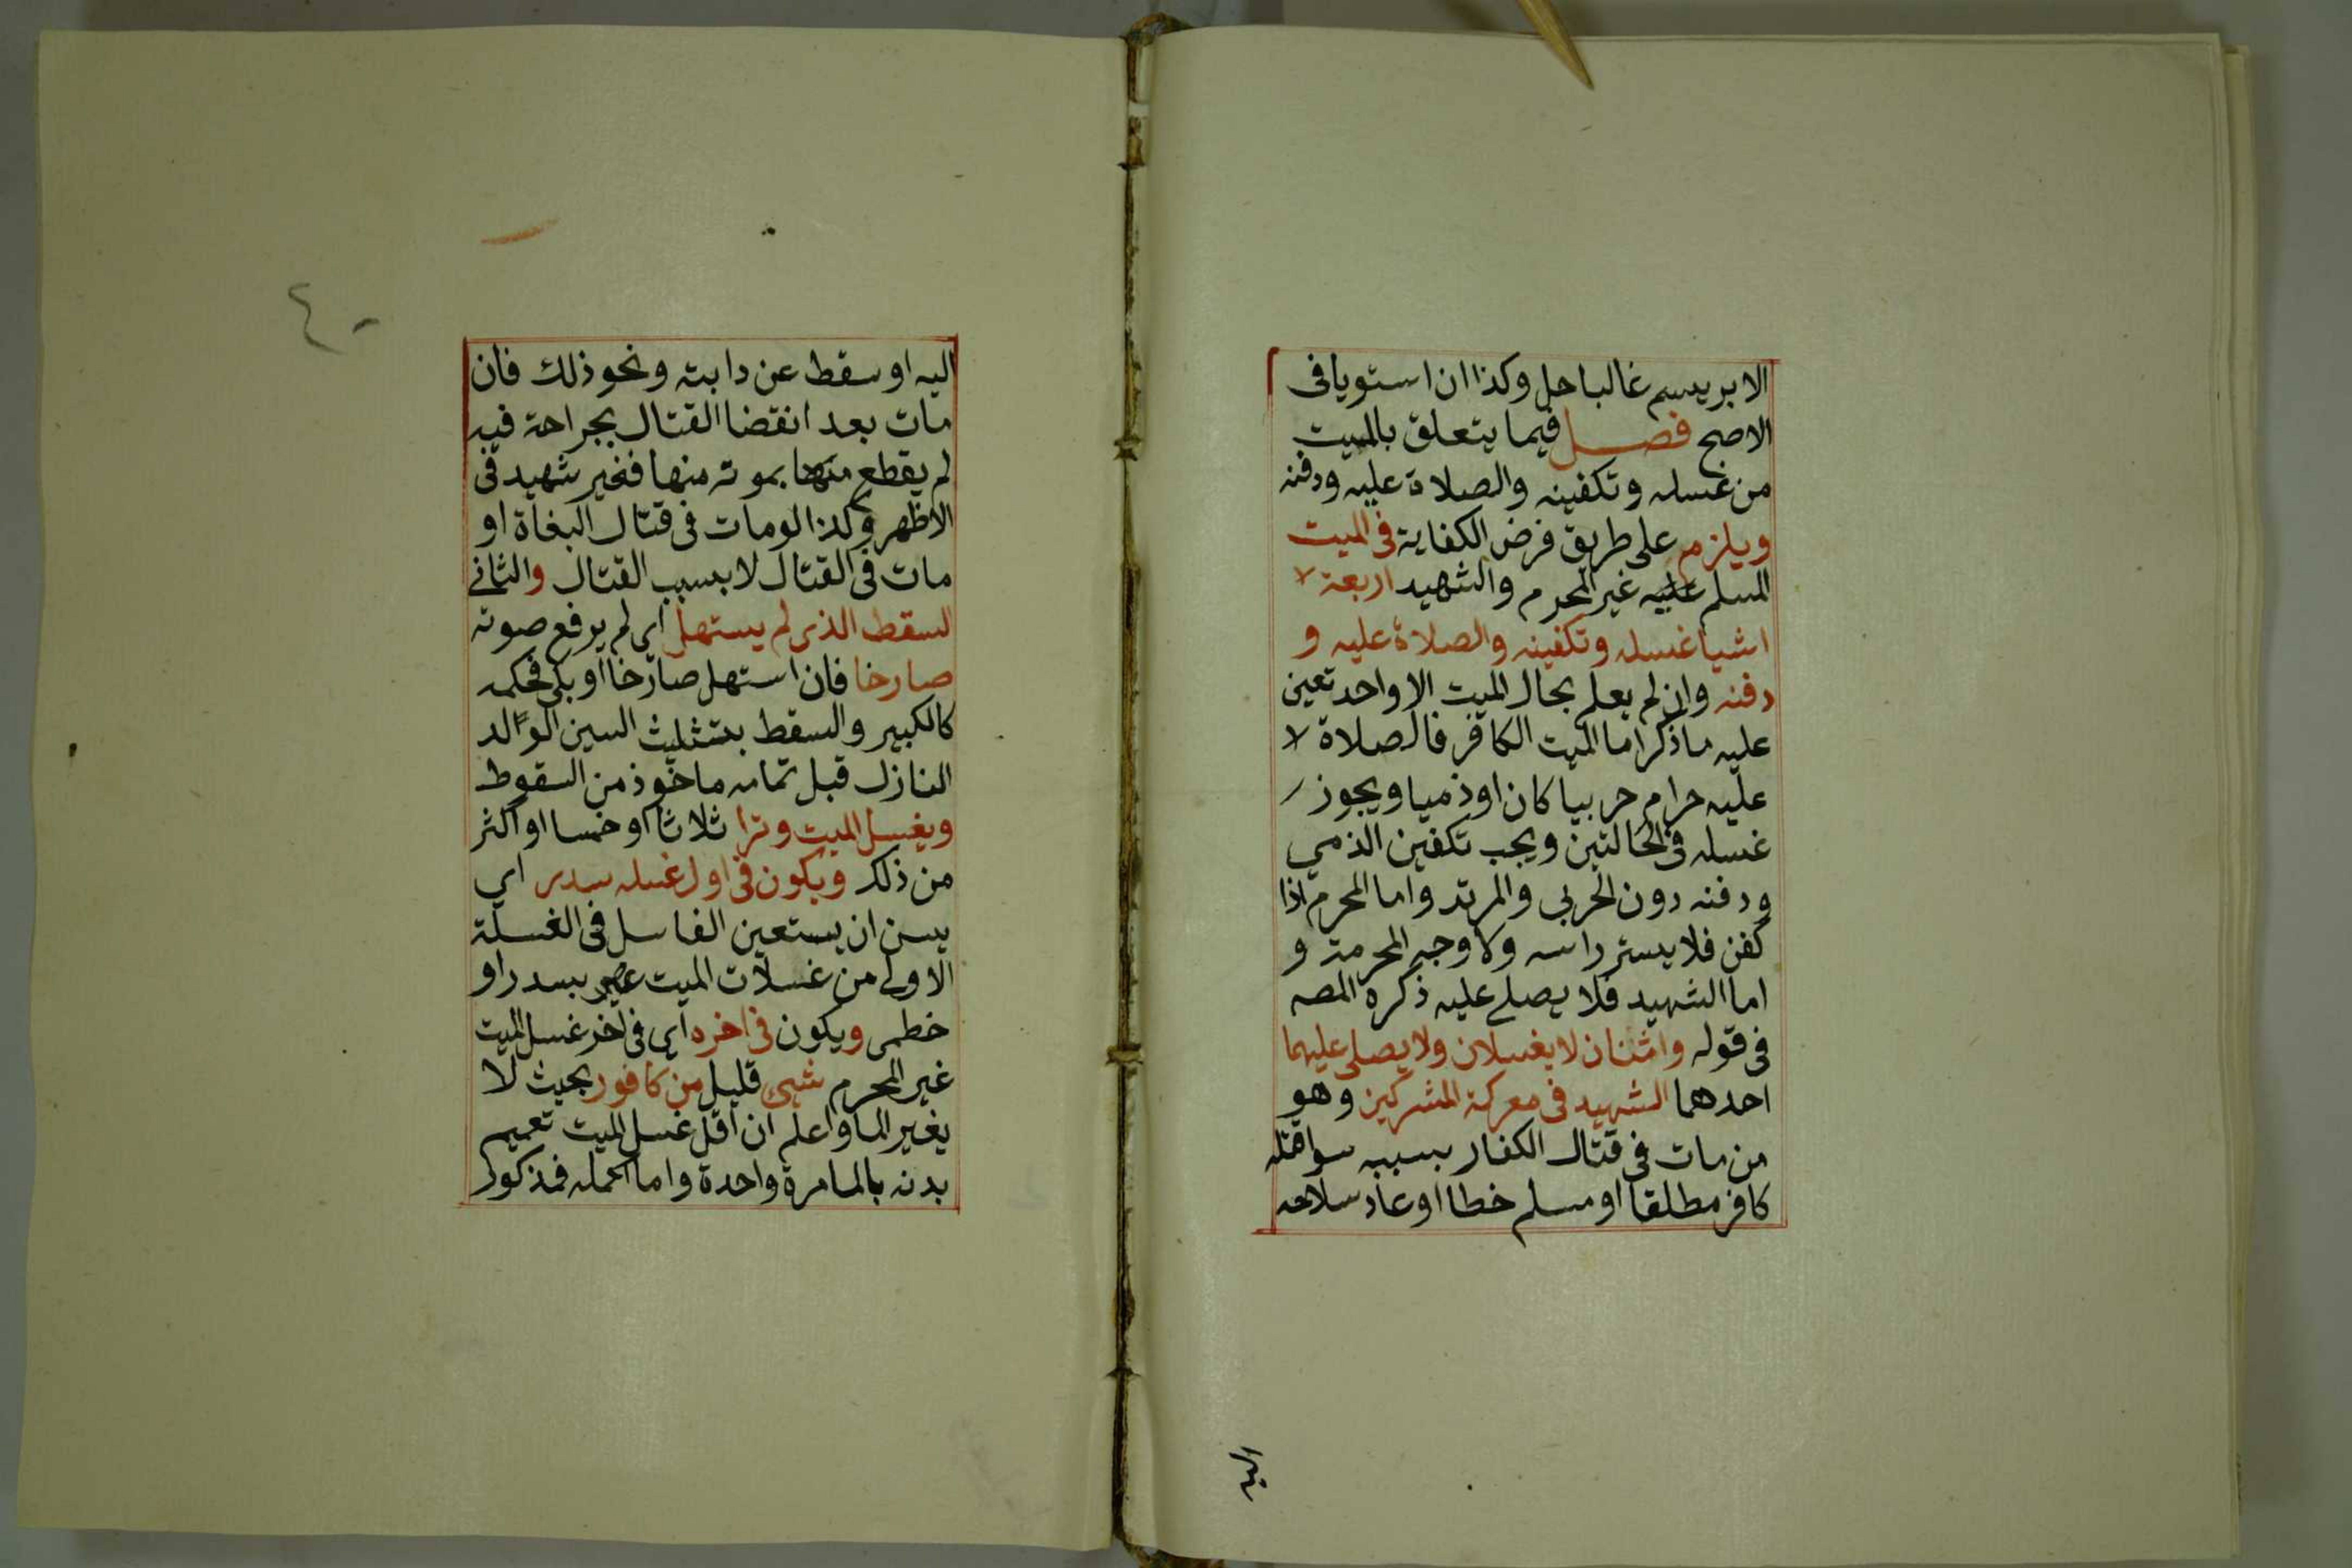 الابريسم غالبا حل وكذا ان استويا فى
الاصح فصل فيما يتعلق بالميت
من غسله وتكفينه والصلاة عليه ودفنه
ويلزم على طريق فرض الكفاية فى الميت
المسلم غير المحرم والشهيد اربعة
اشيا غسله وتكفينه والصلاة عليه و
دفنه وان لم يعلم بحال الميت الا واحد تعين
عليه ما ذكر اما الميت الكافر فالصلاة
عليه حرام حربيا كان او ذميا ويجوز
غسله فى الحالتين ويجب تكفين الذمي
ودفنه دون الحربي والمرتد واما المحرم اذا
كفن فلا يستر راسه ولا وجه المحرمة و
اما الشهيد فلا يصلى عليه ذكره المصه
فى قوله واثنان لا يغسلان ولا يصلى عليهما
احدهما الشهيد فى معركة المشركين وهو
من مات فى قتال الكفار بسببه سوا قتله
كافر مطلقا او مسلم خطا او عاد سلاحه
اليه
اليه او سقط عن دابته ونحو ذلك فان
مات بعد انقضا القتال بجراحة فيه
لم يقطع بموته منها فغير شهيد فى
الاظهر وكذا لو مات فى قتال البغاة او
مات فى القتال لا بسبب القتال والثانى
السقط الذى لم يستهل اى لم يرفع صوته
صارخا فان استهل صارخا او بكى فحكمه
كالكبير والسقط بتثليث السين الولد
النازل قبل تمامه ماخوذ من السقوط
ويغسل الميت وترا ثلاثا او خمسا او اكثر
من ذلك ويكون فى اول غسله سدر اي
يسن ان يستعين الغاسل فى الغسلة
الاولى من غسلات الميت بسدر او
خطمى ويكون فى اخره اى فى اخر غسل الميت
غير المحرم شيى قليل من كافور بحيث لا
يغير الما واعلم ان اقل غسل الميت تعميم
بدنه بالما مرة واحدة واما اكمله فمذكور
٤٠